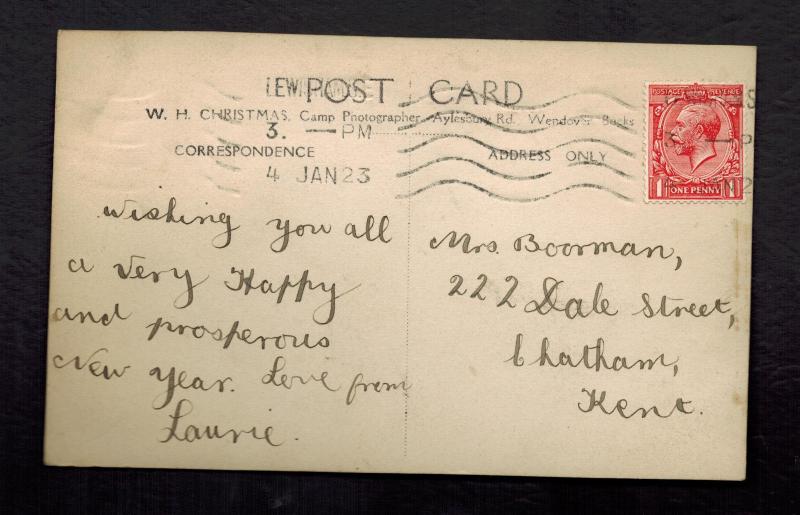 POST CARD
W. H. CHRISTMAS, Camp Photographer, Aylesbury Rd. Wendover Bucks
3. — PM
CORRESPONDENCE
ADDRESS ONLY
4 JAN 23
POSTAGE REVENUE
1 ONE PENNY 1
Wishing you all
a very Happy
and prosperous
New Year. Love from
Laurie.
Mrs. Boorman,
222 Dale Street,
Chatham,
Kent.